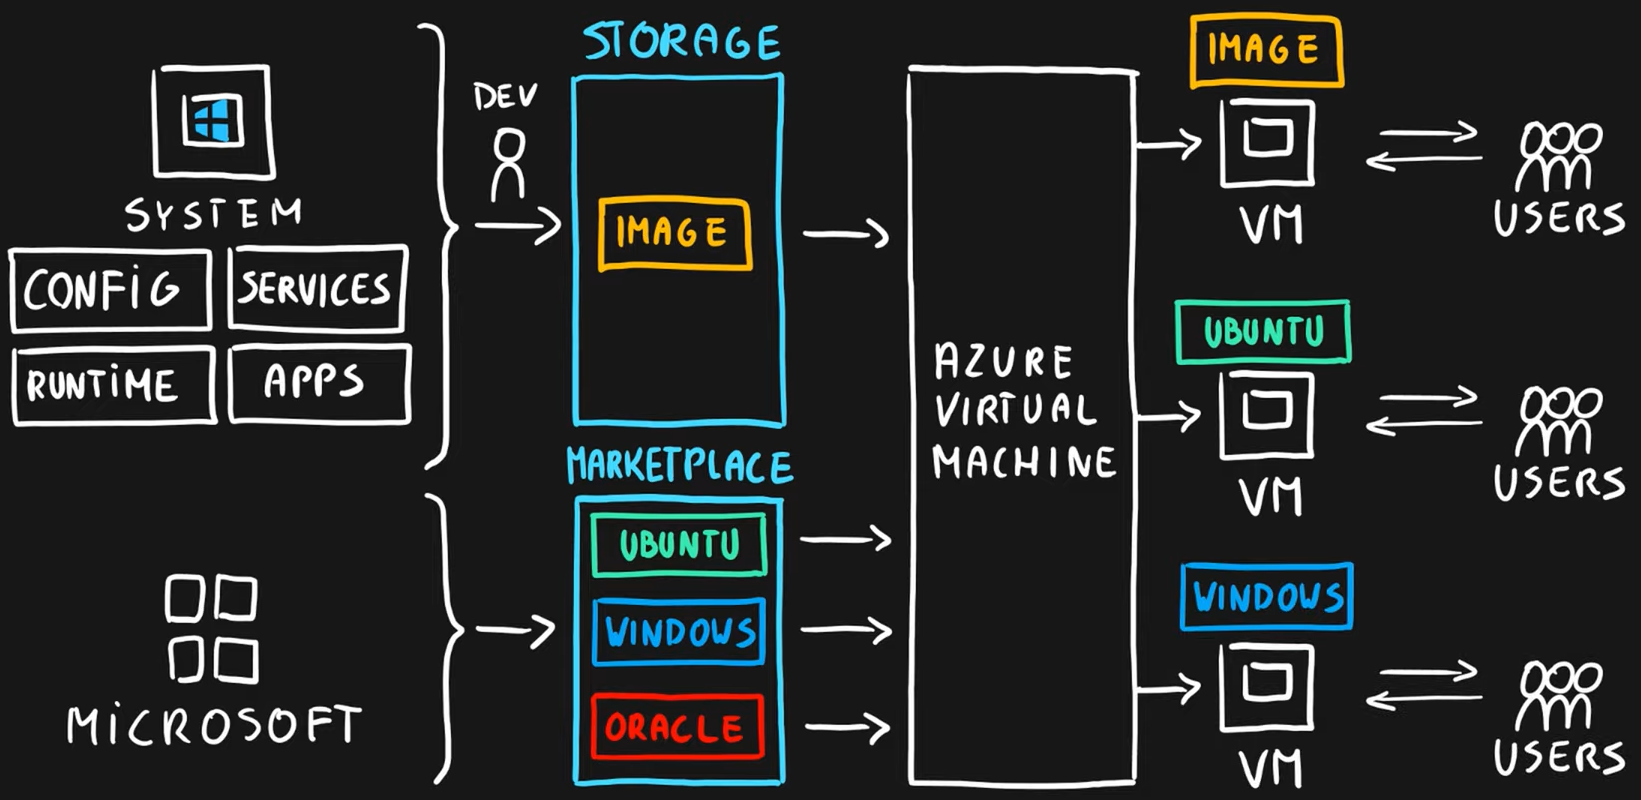 SYSTEM
CONFiG
SERVICES
RUNTiME
APPS
MiCROSOFT
DEV
STORAGE
IMAGE
MARKETPLACE
UBUNTU
WINDOWS
ORACLE
AZURE
VIRTUAL
MACHINE
IMAGE
VM
USERS
UBUNTU
VM
USERS
WINDOWS
VM
USERS